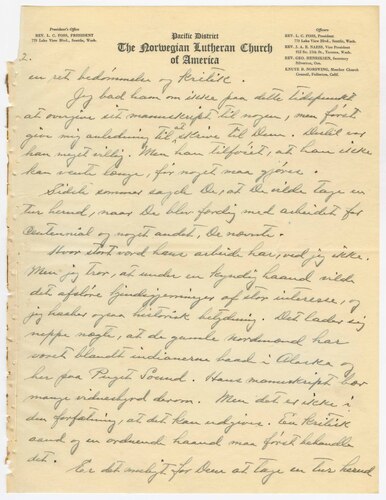 President's Office
REV. L. C. FOSS, PRESIDENT
Seattle, Wash.
Pacific District
The Norwegian Lutheran Church
of America
Officers
REV. L. C. FOSS, President
Seattle, Wash.
REV. J. A. E. NAESS, Vice President
Tacoma, Wash.
REV. GEO. HENRIKSEN, Secretary
Silverton, Ore.
KNUTE B. NORSWING, Member Church
Council, Fullerton, Calif.
2.
en ret bedømmelse og kritik.
Jeg bad ham om ikke paa dette tidspunkt
at overgive sit manuskript til nogen, men först
give mig anledning til at skrive til Dem. Dertil var
han meget villig. Men han tilföiet, at han ikke
kan vente længe, för noget maa gjöres.
Sidste sommer sagde De, at De vilde tage en
tur herud, naar De blev færdig med arbeidet for
Centennial og noget andet, De nævnte.
Hvor stort værd hans arbeide har, ved jeg ikke.
Men jeg tror, at under en kyndig haand vilde
det afslöre af stor interesse, og
jeg ogsaa historisk betydning. Det lader sig
neppe nægte, at de gamle nordmænd har
været blandt indianerne baade i Alaska og
her paa Puget Sound. Hans manuskript bær
mange vidnesbyrd derom. Men det er ikke i
den forfatning, at det kan udgives. En kritisk
aand og en ordnende haand maa först behandle
det.
Er det muligt for Dem at tage en tur herud